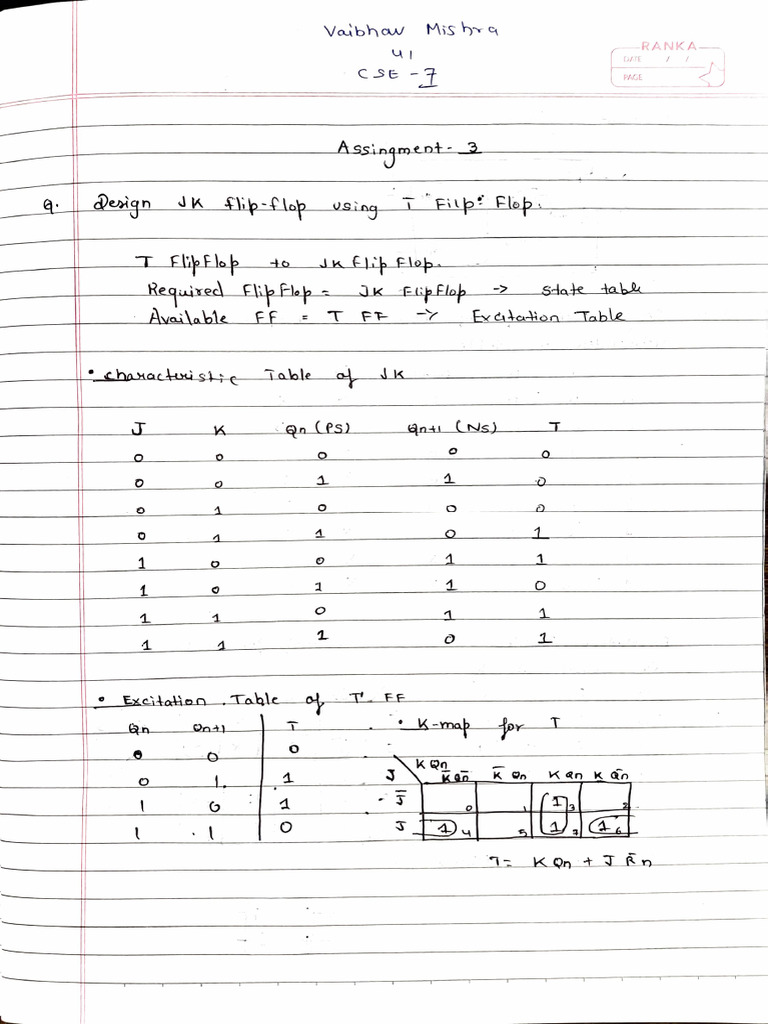 Vaibhav Mishra
41
CSE - 7
RANKA
DATE / /
PAGE
Assingment - 3
Q. Design JK flip-flop using T Filp-Flop.
T FlipFlop to JK Flip Flop.
Required FlipFlop = JK FlipFlop -> State table
Available FF = T FF -> Excitation Table
• Characteristic Table of JK
J K Qn (PS) Qn+1 (NS) T
0 0 0 0 0
0 0 1 1 0
0 1 0 0 0
0 1 1 0 1
1 0 0 1 1
1 0 1 1 0
1 1 0 1 1
1 1 1 0 1
• Excitation Table of T FF
Qn Qn+1 T
0 0 0
0 1 1
1 0 1
1 1 0
• K-map for T
K Qn
J K̄ Q̄n K̄ Qn K Qn K Q̄n
J̄ 0 1 1 3 2
J 1 4 5 1 7 1 6
T = K Qn + J Q̄n